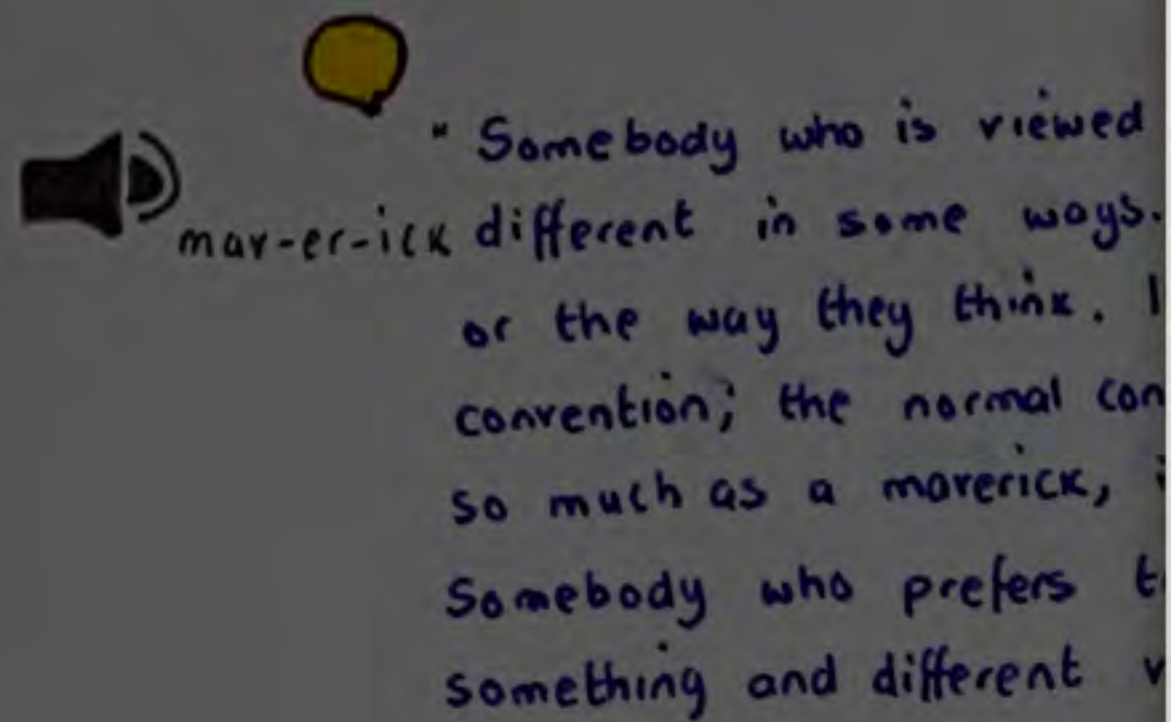 " Somebody who is viewed
mav-er-ick different in some ways.
or the way they think.
convention; the normal
so much as a maverick,
Somebody who prefers
something and different